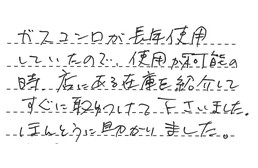 ガスコンロが長年使用
していたので、使用が不可能の
時、店にある在庫を紹介して
すぐに取りつけて下さいました。
ほんとうに助かりました。